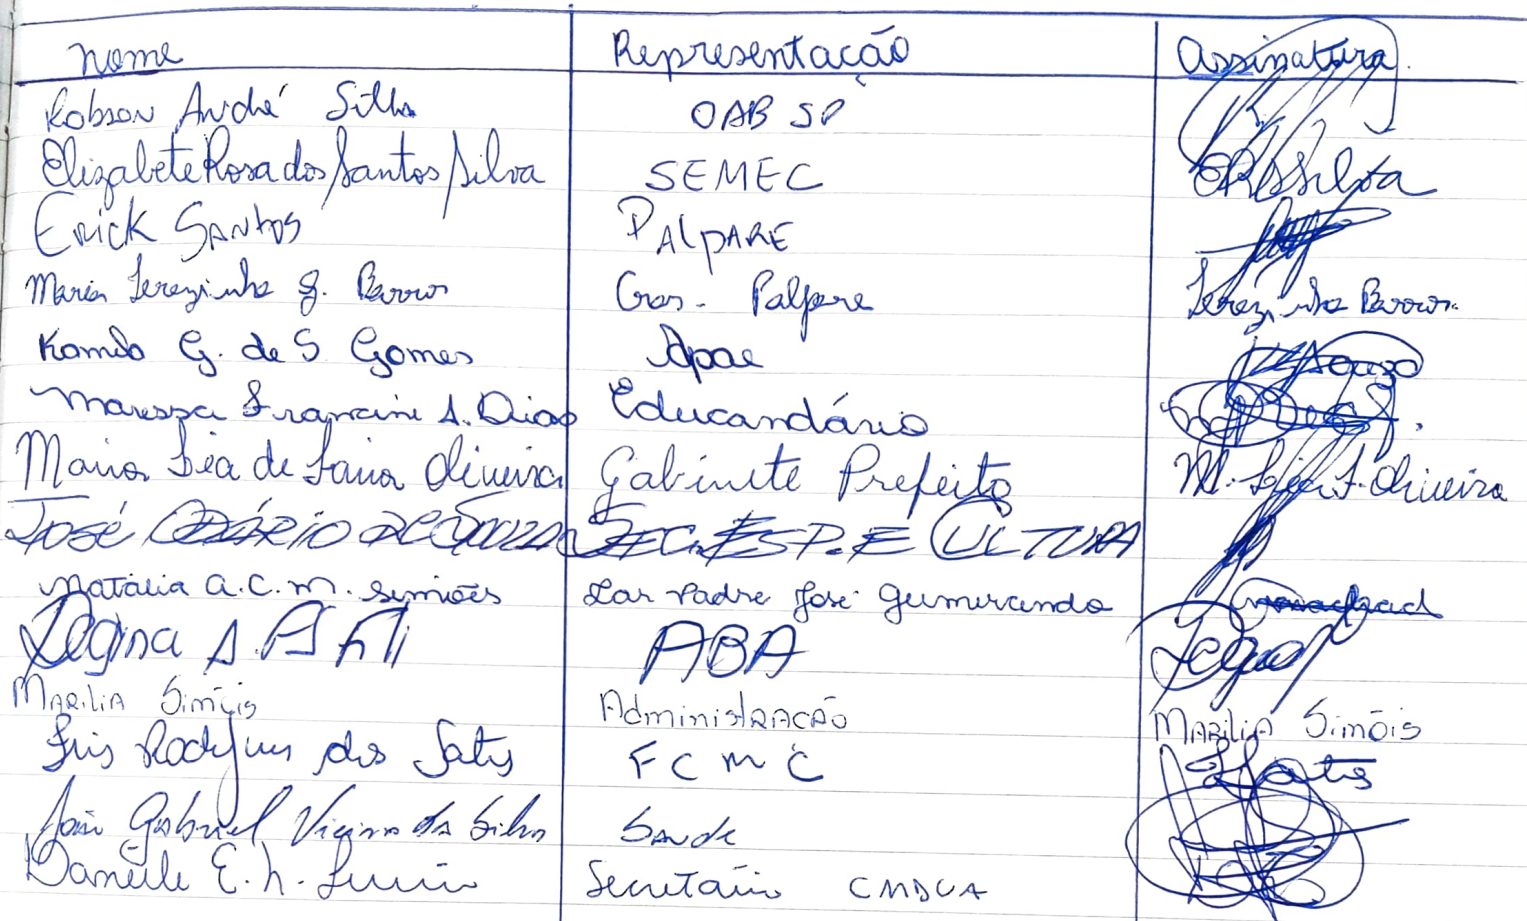 Nome Representação Assinatura
Robson André Silva OAB SP
Elizabete Rosa dos Santos Silva SEMEC ERSSilva
Erick Santos PALPARE
Maria Terezinha G. Barros Cras - Palpare Terezinha Barros
Kamila G. de S Gomes Apae Souza
Maressa Francine A. Dias Educandário
Maria Léa de Faria Oliveira Gabinete Prefeito M. Léa F. Oliveira
JOSÉ DE SOUZA SEC. ESP. E CULTURA
Natália A.C.M. Simões Lar Padre José Gumercindo
Regina A. ABA
MARILIA Simões AdministRAÇÃO MARILIA Simões
Rodrigues dos FCMC
João Gabriel Vieira da Silva Saúde
Danielle E. Secretário CMDCA